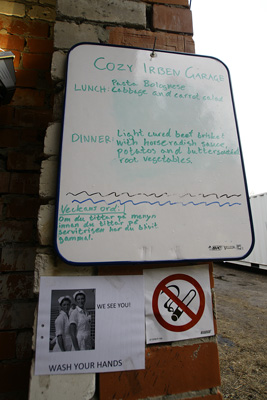 COZY IRBEN GARAGE
LUNCH: Pasta Bolognese
Cabbage and carrot salad
DINNER: Light cured beaf brisket
with horseradish sauce
potatos and buttersauteed
root vegetables.
Veckans ord:
Om du tittar på menyn
innan du tittar på
servitrisen har du blivit
gammal.
WE SEE YOU!
WASH YOUR HANDS